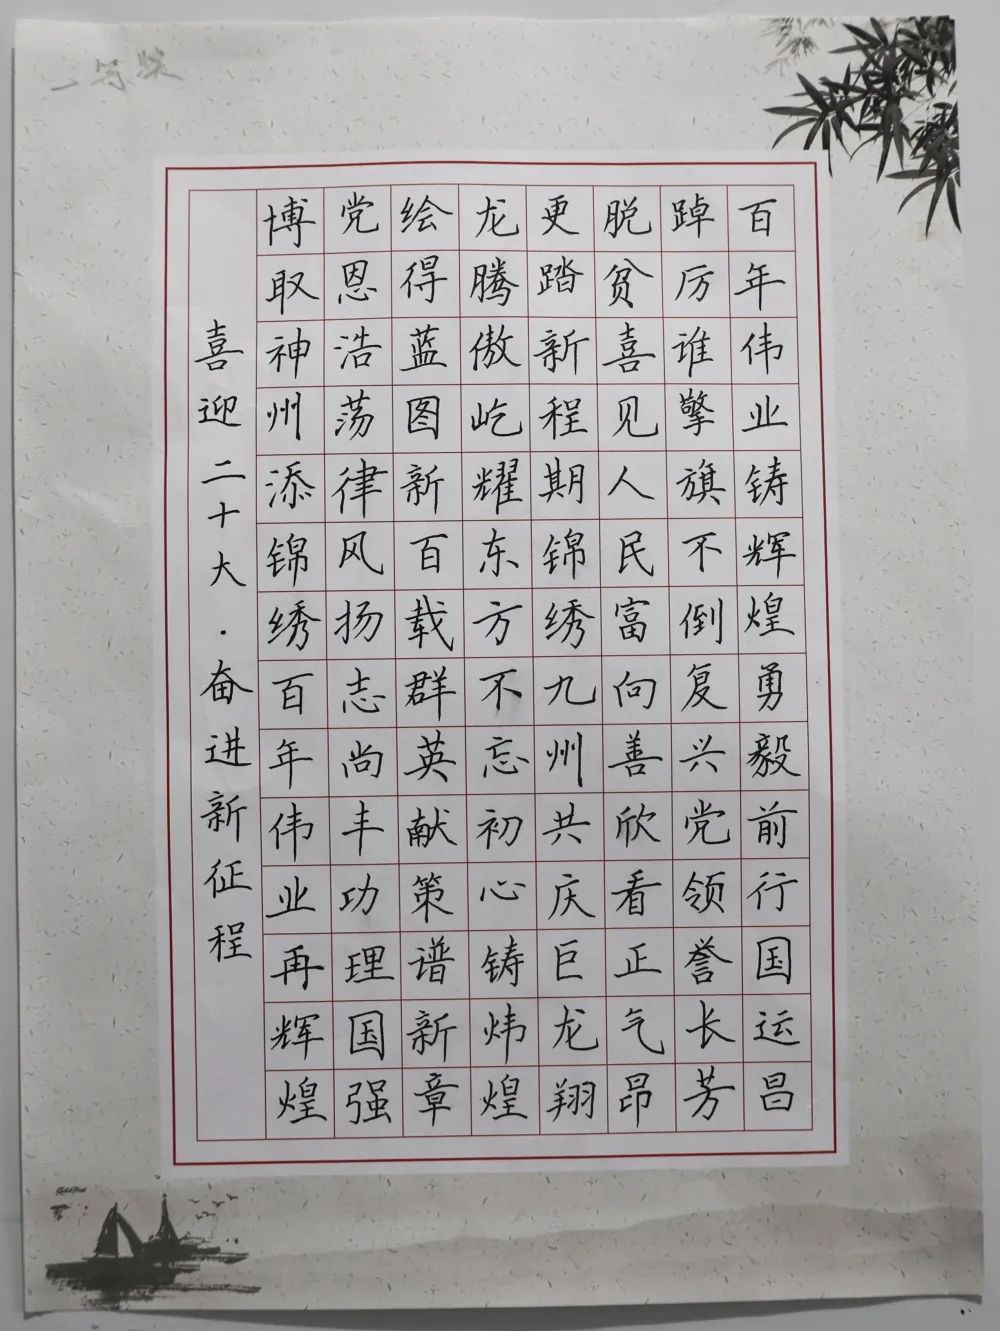 百年伟业铸辉煌勇毅前行国运昌
踔厉谁擎旗不倒复兴党领誉长芳
脱贫喜见人民富向善欣看正气昂
更踏新程期锦绣九州共庆巨龙翔
龙腾傲屹耀东方不忘初心铸炜煌
绘得蓝图新百载群英献策谱新章
党恩浩荡律风扬志尚丰功理国强
博取神州添锦绣百年伟业再辉煌
喜迎二十大·奋进新征程